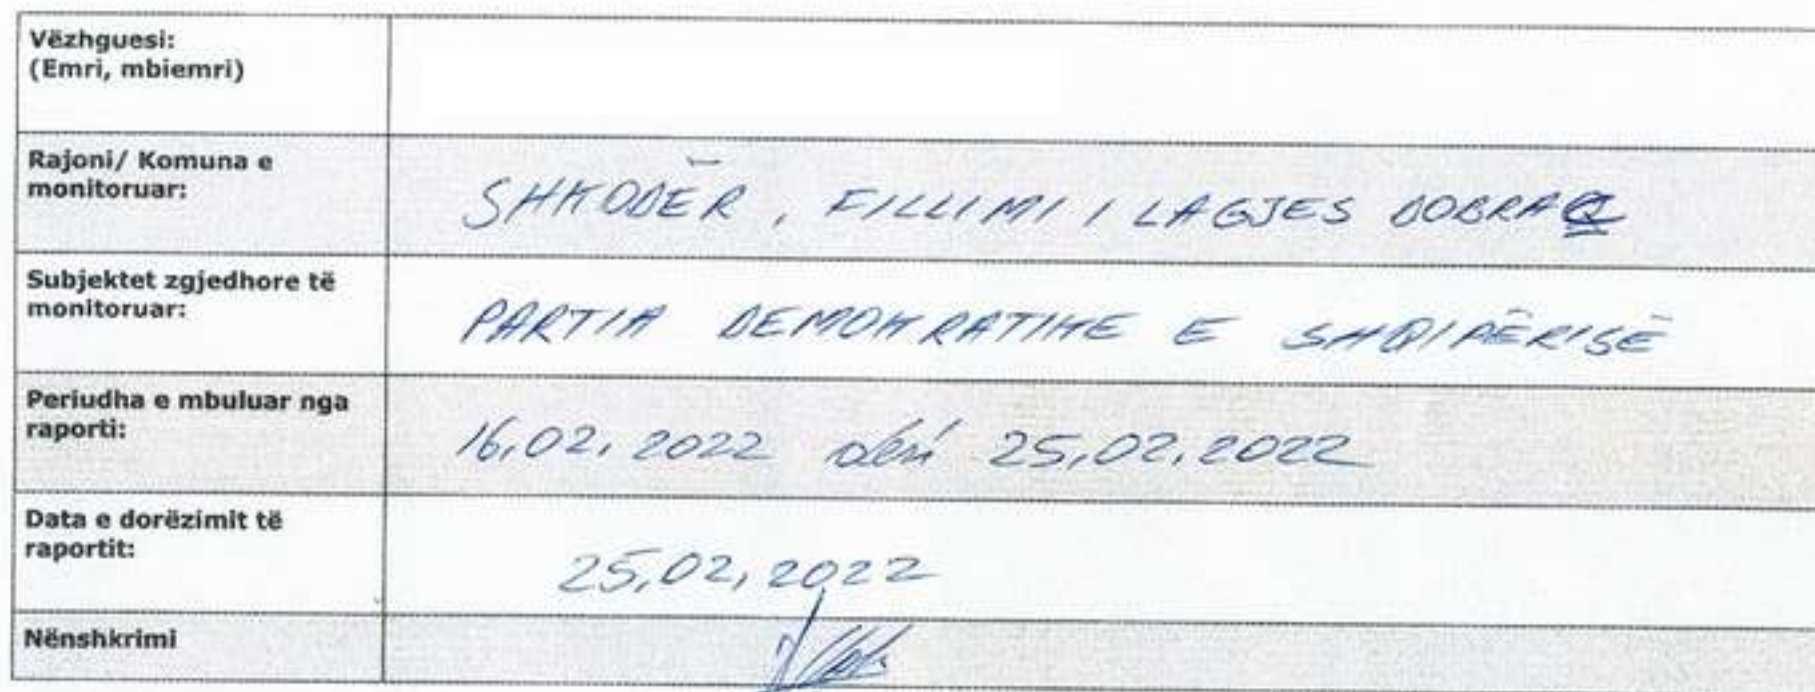 Vëzhguesi:
(Emri, mbiemri)
Rajoni/ Komuna e
monitoruar:
SHKODËR, FILLIMI I LAGJES DOBRAÇ
Subjektet zgjedhore të
monitoruar:
PARTIA DEMOKRATIKE E SHQIPËRISË
Periudha e mbuluar nga
raporti:
16.02.2022 deri 25.02.2022
Data e dorëzimit të
raportit:
25.02.2022
Nënshkrimi